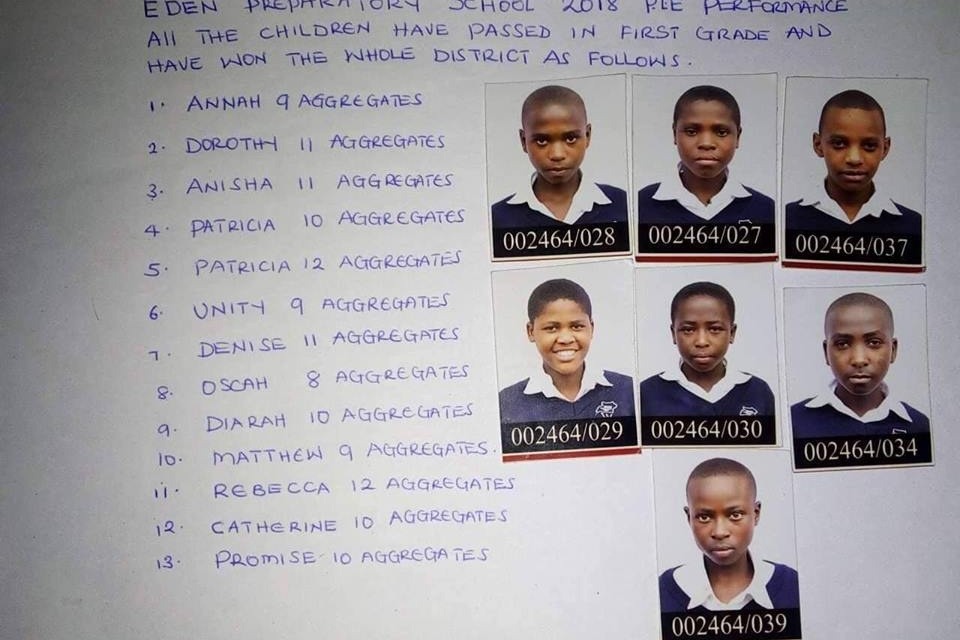 EDEN PREPARATORY SCHOOL 2018 PLE PERFORMANCE
All THE CHILDREN HAVE PASSED IN FIRST GRADE AND
HAVE WON THE WHOLE DISTRICT AS FOLLOWS.
1. ANNAH 9 AGGREGATES
2. DOROTHY 11 AGGREGATES
3. ANISHA 11 AGGREGATES
4. PATRICIA 10 AGGREGATES
5. PATRICIA 12 AGGREGATES
6. UNITY 9 AGGREGATES
7. DENISE 11 AGGREGATES
8. OSCAH 8 AGGREGATES
9. DIARAH 10 AGGREGATES
10. MATTHEW 9 AGGREGATES.
11. REBECCA 12 AGGREGATES
12. CATHERINE 10 AGGREGATES
13. PROMISE 10 AGGREGATES
002464/028
002464/027
002464/037
002464/029
002464/030
002464/034
002464/039